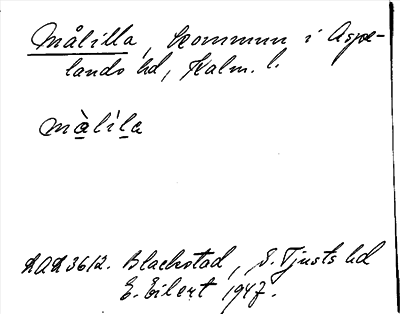 Målilla, kommun i Aspe-
lands hd, Kalm. l.
màlíla
AAD 3612. Blackstad, S. Tjusts hd
E. Eilert 1947.